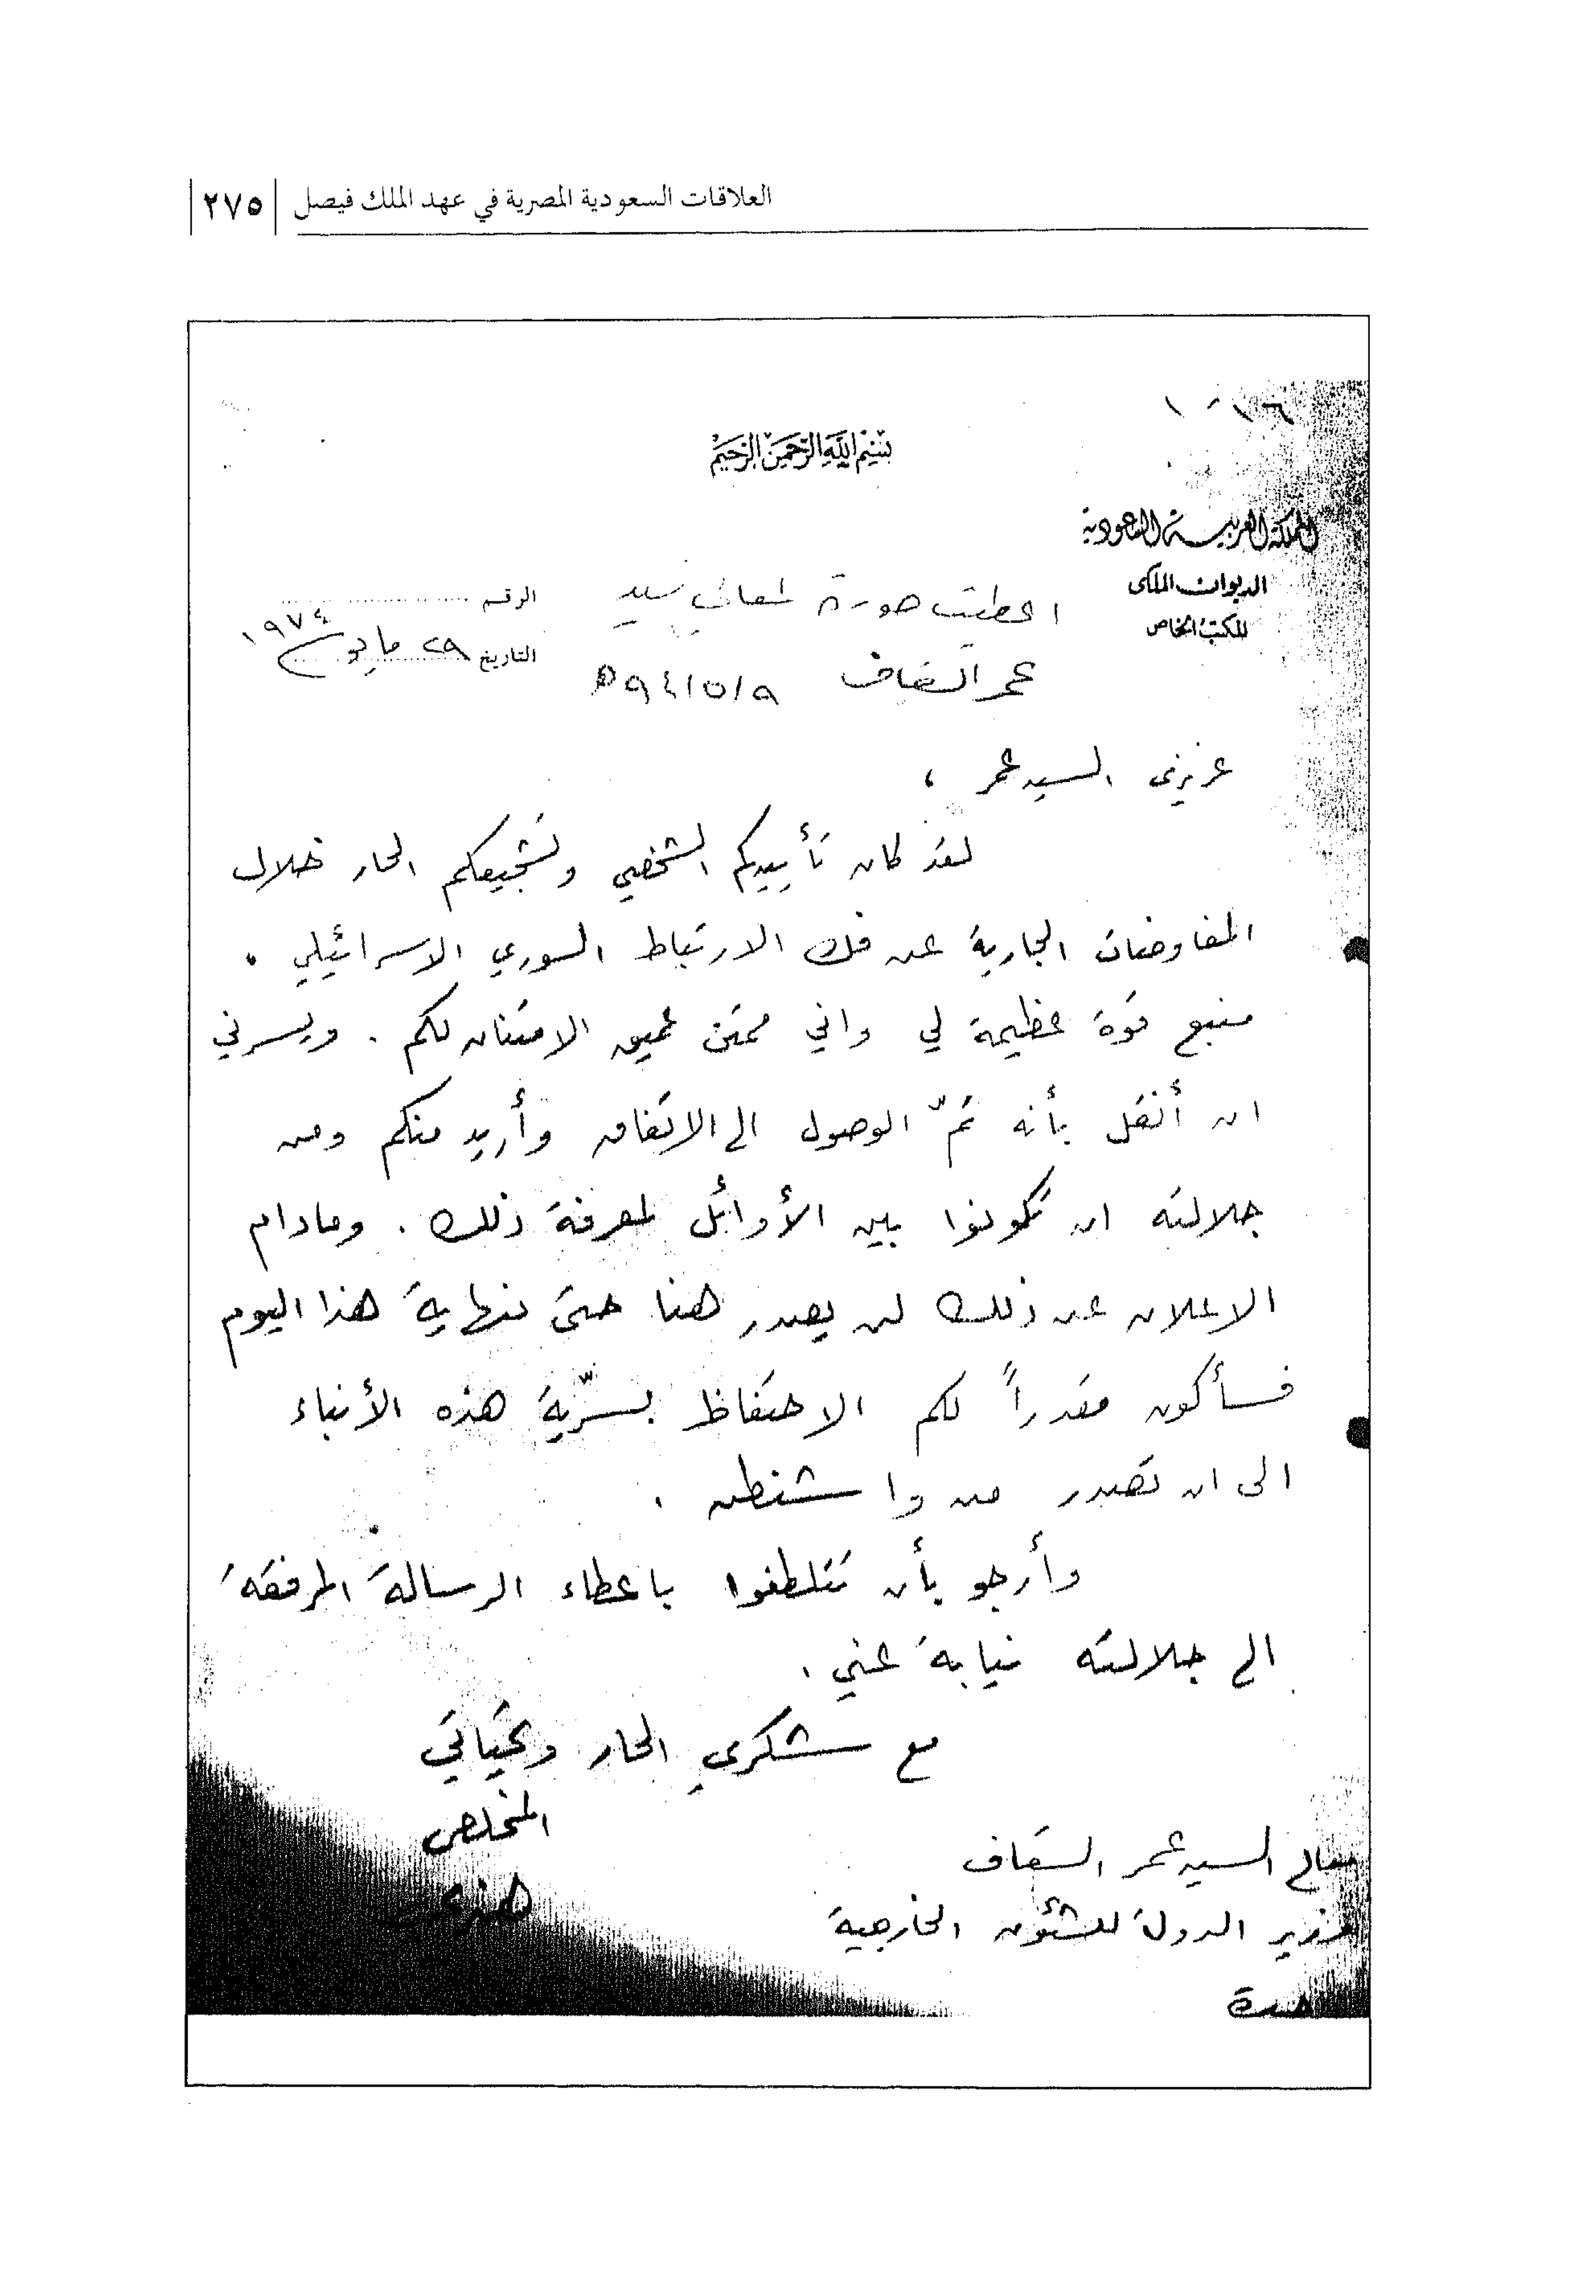 العلاقات السعودية المصرية في عهد الملك فيصل | ٢٧٥
بسم الله الرحمن الرحيم
المملكة العربية السعودية
الديوان الملكي
المكتب الخاص
الرقم
التاريخ ٢٩ مايو ١٩٧٤
اعطيت صورة لمعالي سيد
عمر السقاف ٩٤/٥/٩ه
عزيزي السيد عمر ،
لقد كان تأييدكم الشخصي وتشجيعكم الحار خلال
المفاوضات الجارية عن فك الارتباط السوري الاسرائيلي .
منبع قوة عظيمة لي واني ممتن عميق الامتنان لكم . ويسرني
ان أنقل بأنه تمّ الوصول الى الاتفاق وأريد منكم ومن
جلالته ان تكونوا بين الأوائل لمعرفة ذلك . ومادام
الاعلان عن ذلك لن يصدر هنا حتى نهاية هذا اليوم
فسأكون مقدراً لكم الاحتفاظ بسرّية هذه الأنباء
الى ان تصدر من واشنطن .
وأرجو بأن تتلطفوا باعطاء الرسالة المرفقة
الى جلالته نيابة عني .
مع شكري الحار وتحياتي
المخلص
هنري
معالي السيد عمر السقاف
وزير الدولة للشئون الخارجية
جدة